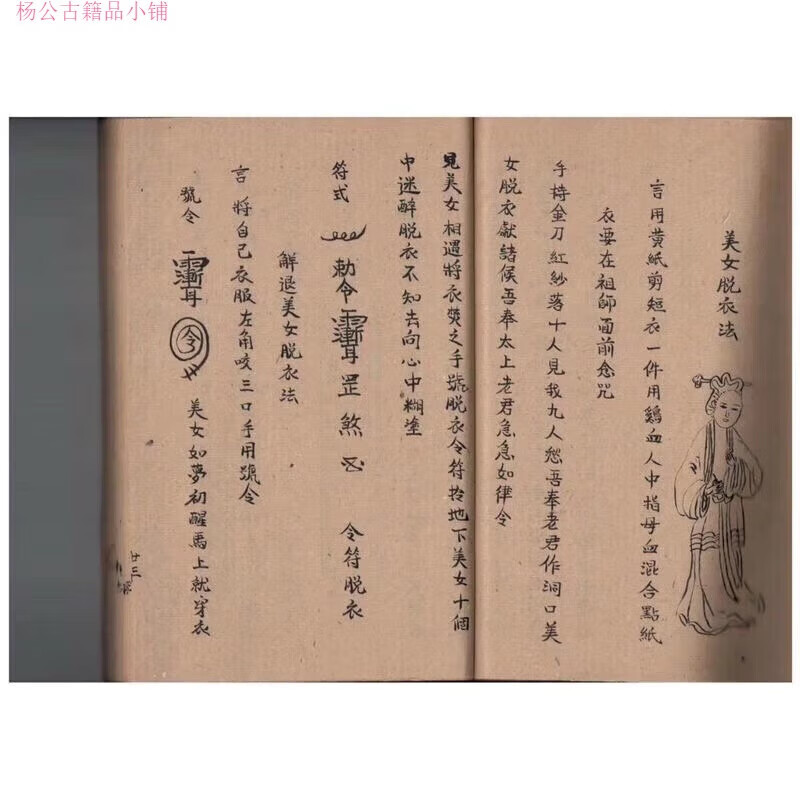 杨公古籍品小铺
美女脱衣法
言用黄紙剪短衣一件用鷄血人中指母血混合點紙
衣要在祖師面前念咒
手持金刀紅紗落十人見我九人怨吾奉老君作洞口美
女脱衣獻諸侯吾奉太上老君急急如律令
見美女相遇將衣焚之手號脱衣令符拎地下美女十個
中迷醉脱衣不知去向心中糊塗
符式
勅令
罡煞
令符脱衣
解退美女脱衣法
言將自己衣服左角咬三口手用號令
號令
令
美女如夢初醒馬上就穿衣